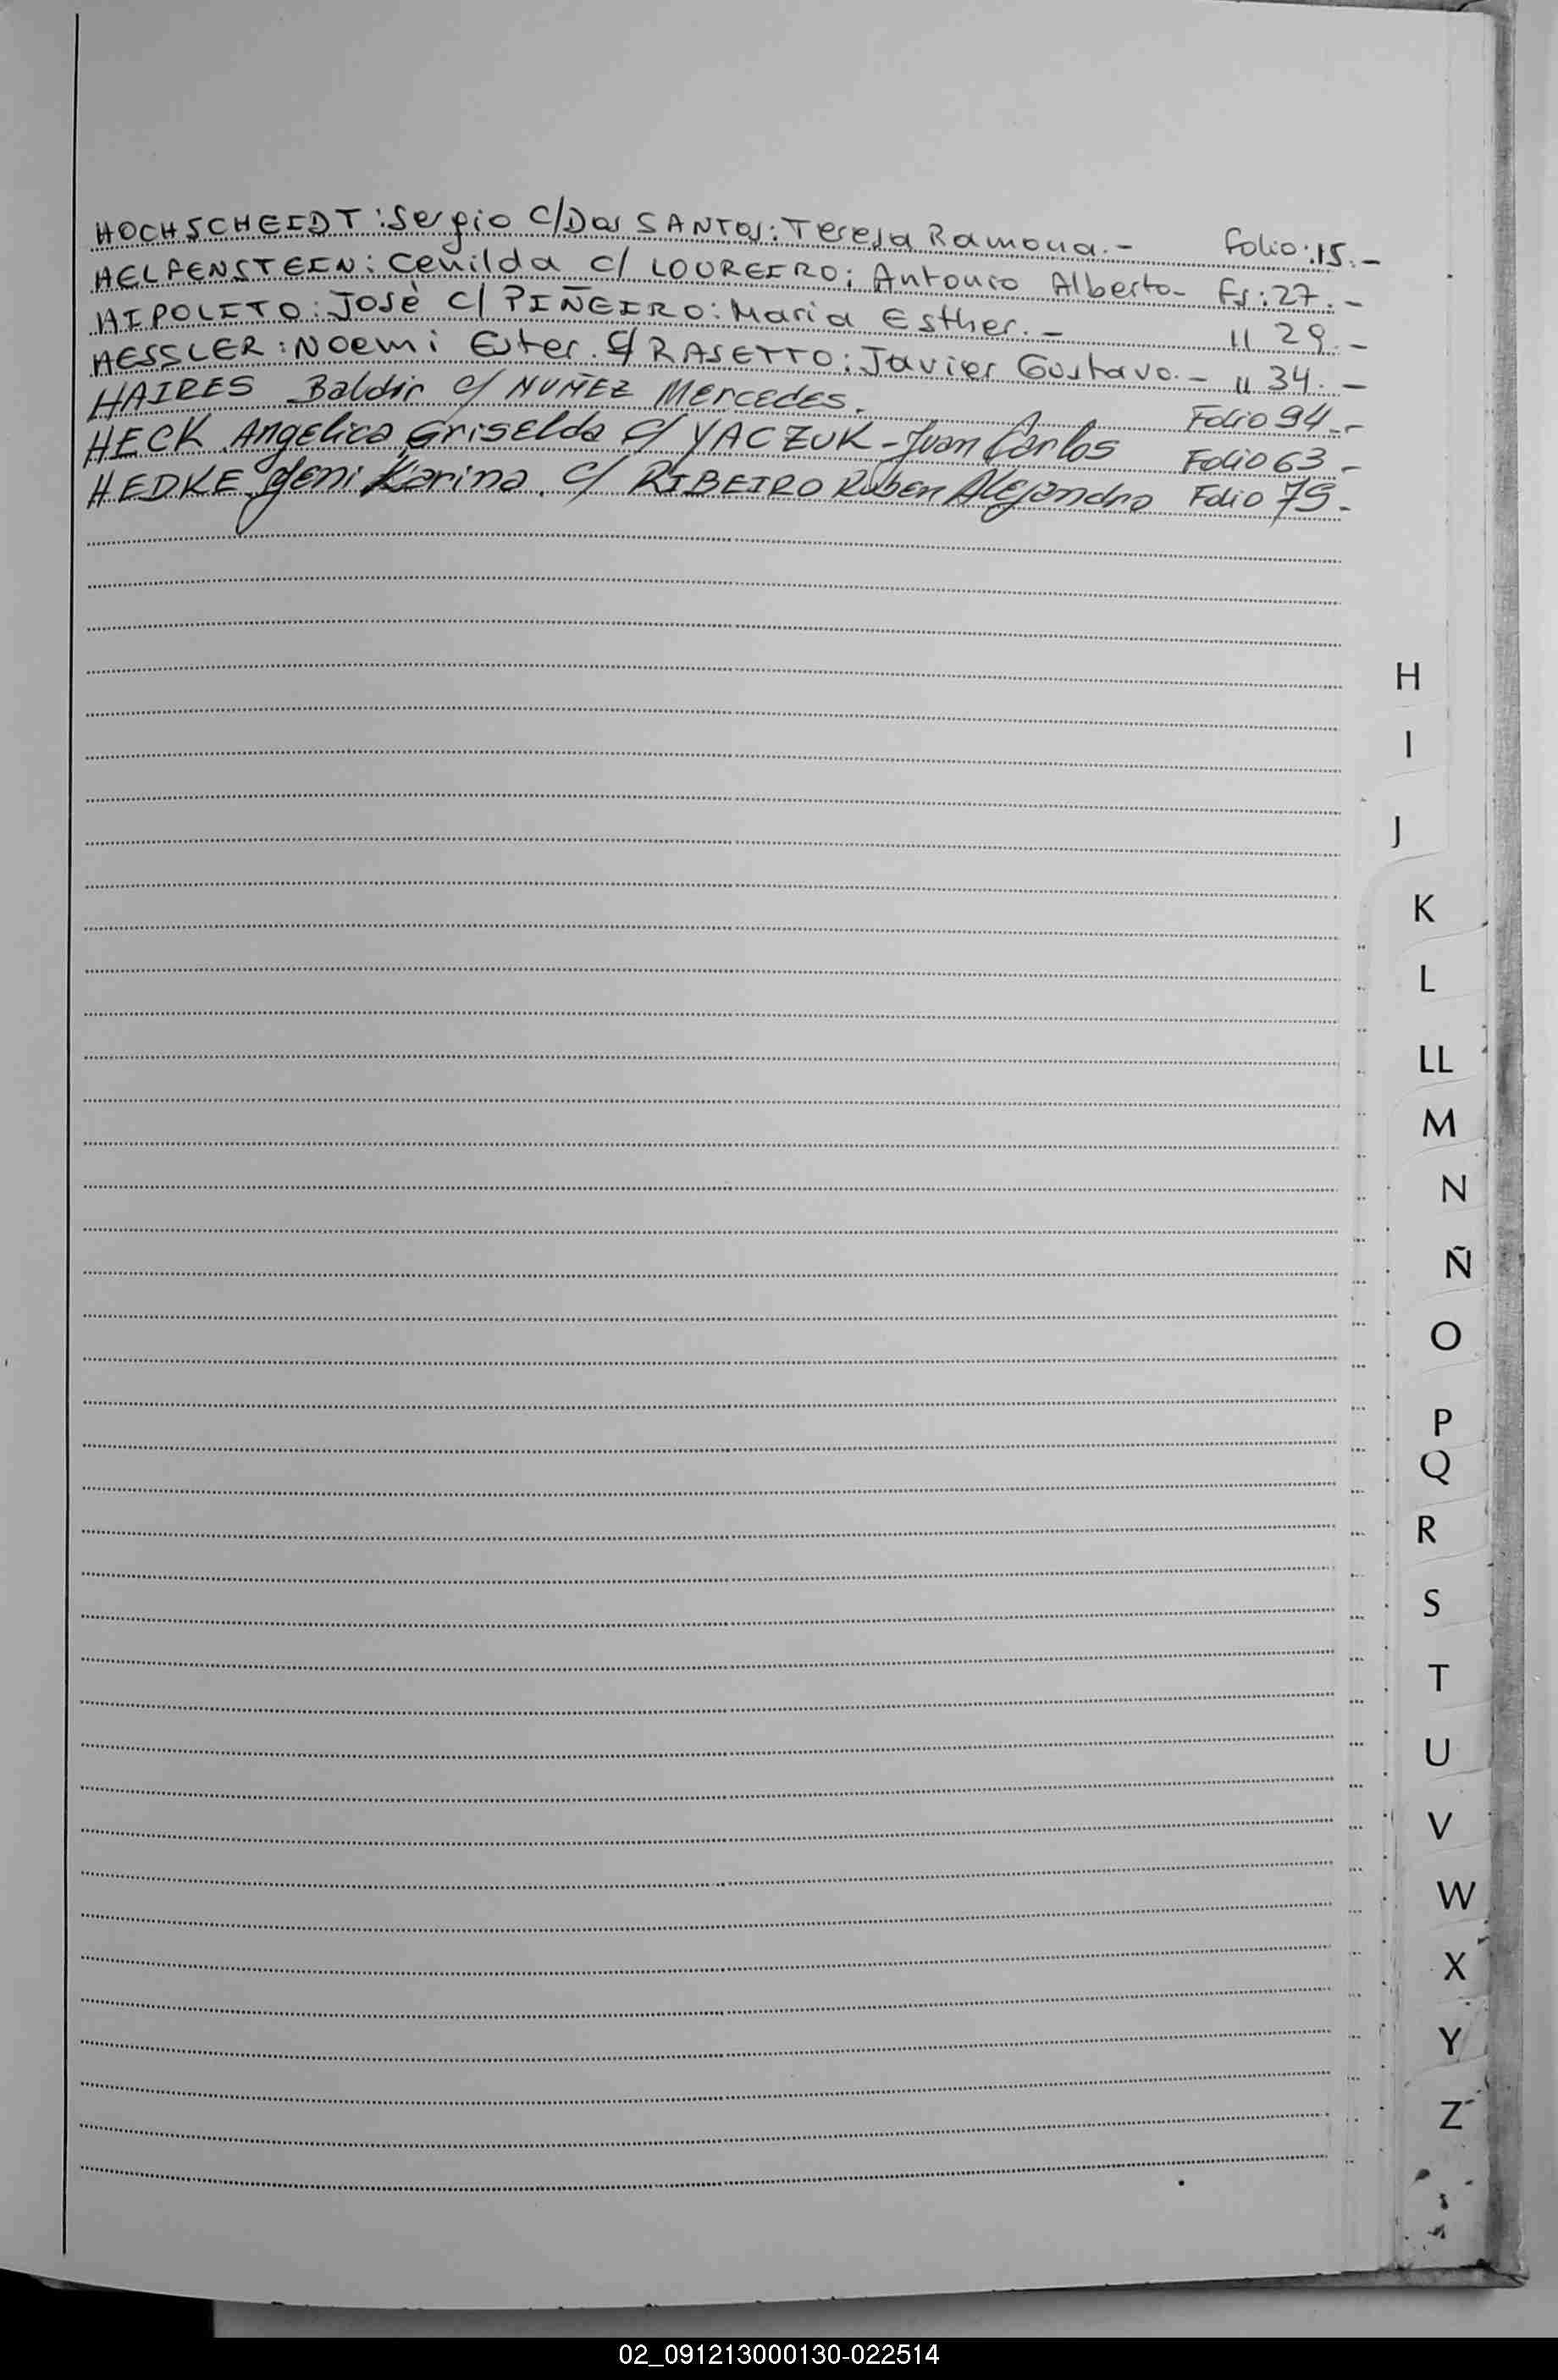 HOCHSCHEIDT: Sergio C/Dos SANTOS: Teresa Ramona.- Folio:15.-
HELFENSTEIN: Cenilda c/ LOUREIRO: Antonio Alberto- Fs:27.-
HIPOLITO: José c/ PIÑEIRO: Maria Esther.- " 29.-
HESSLER: Noemi Ester. c/ RASETTO: Javier Gustavo.- " 34.-
HAIRES Baldir c/ NUÑEZ Mercedes. Folio 94.-
HECK Angelica Griselda c/ YACZUK - Juan Carlos Folio 63.-
HEDKE Yeni Karina. c/ RIBEIRO Ruben Alejandro Folio 79.-
H
I
J
K
L
LL
M
N
Ñ
O
P
Q
R
S
T
U
V
W
X
Y
Z
02_091213000130-022514